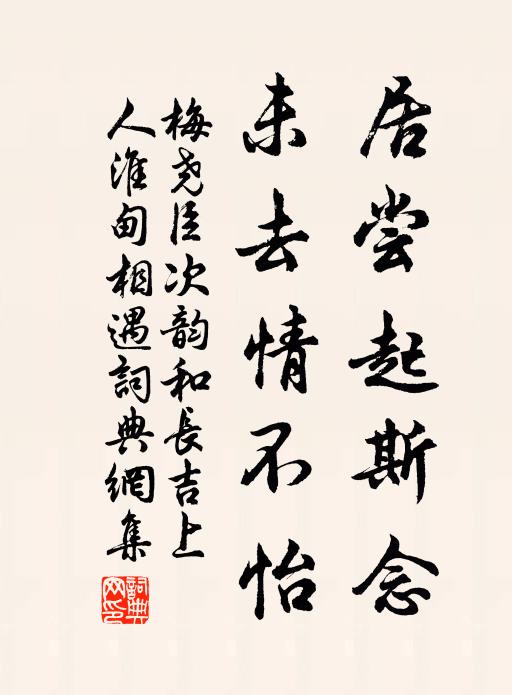 居尝起斯念
未去情不怡
梅尧臣次韵和长吉上
人淮甸相遇詞典網集
詞典网印